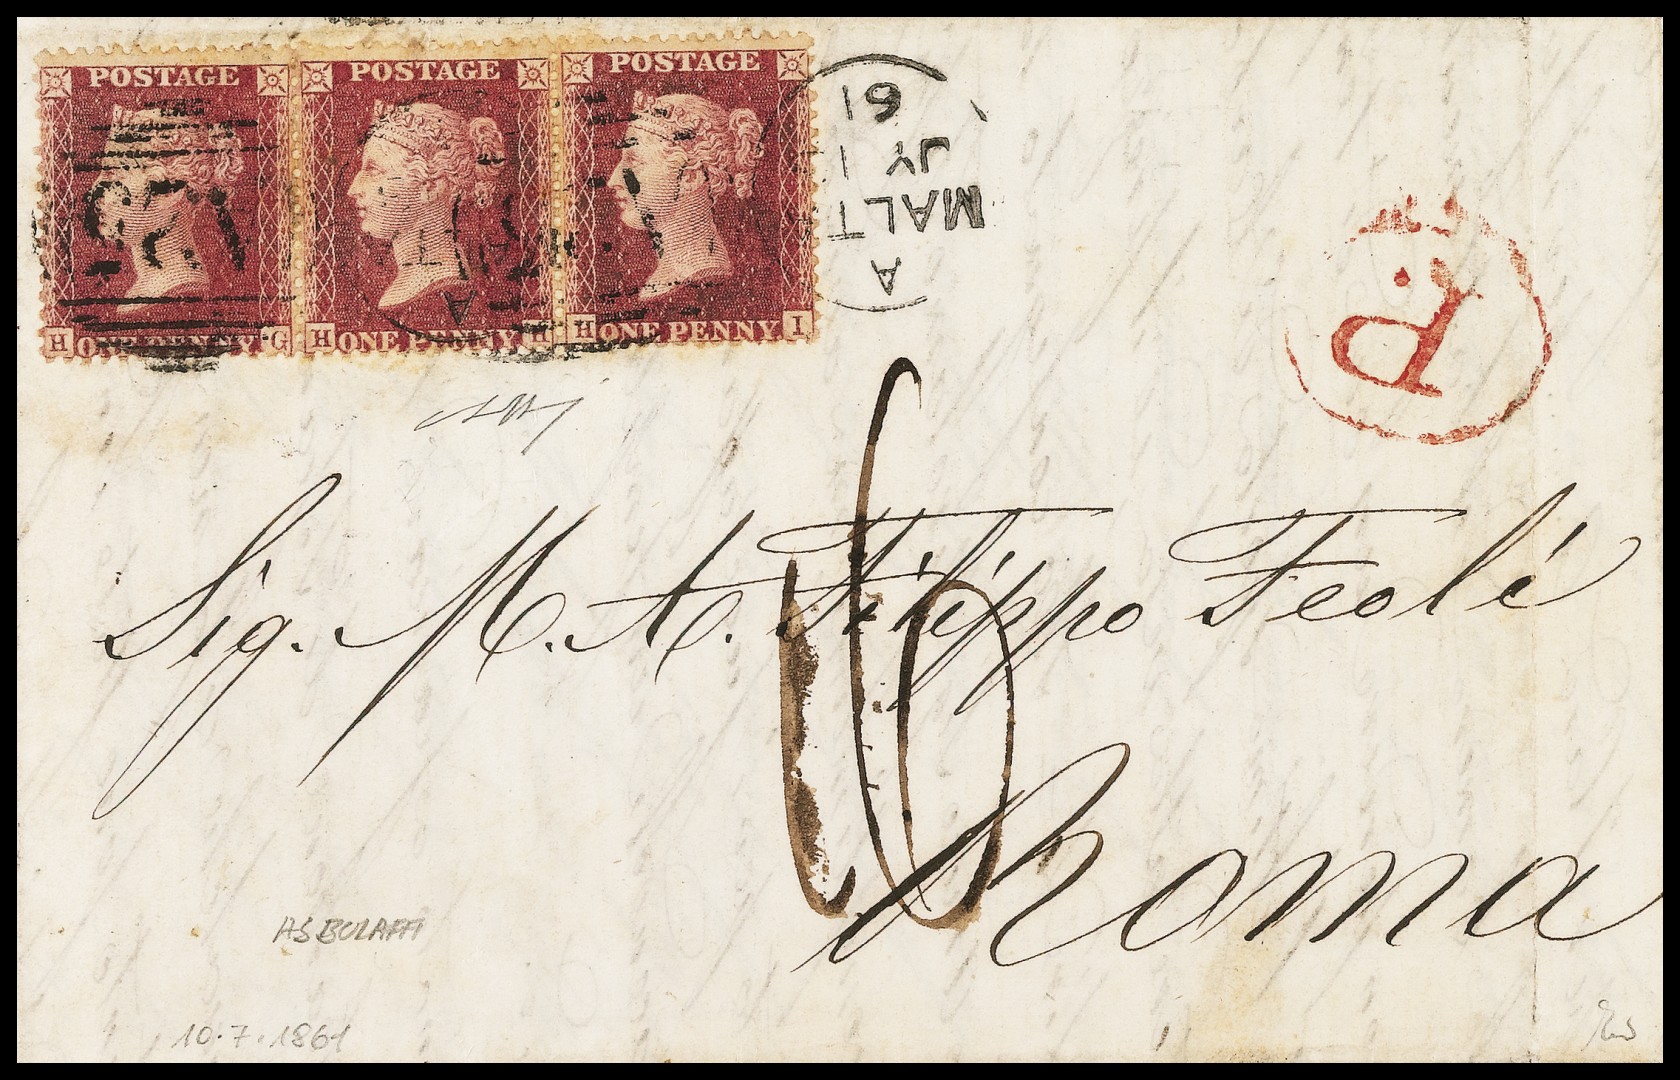 POSTAGE POSTAGE POSTAGE
H ONE PENNY G H ONE PENNY H H ONE PENNY I
A
MALT
JY 1
61
P.
Sig. M. A. Filippo Feolé
Roma
ASBOLAFFI
10.7.1861